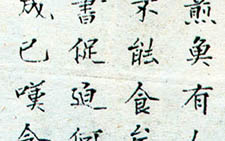 煎魚有
不能食
書促迫
成已嘆